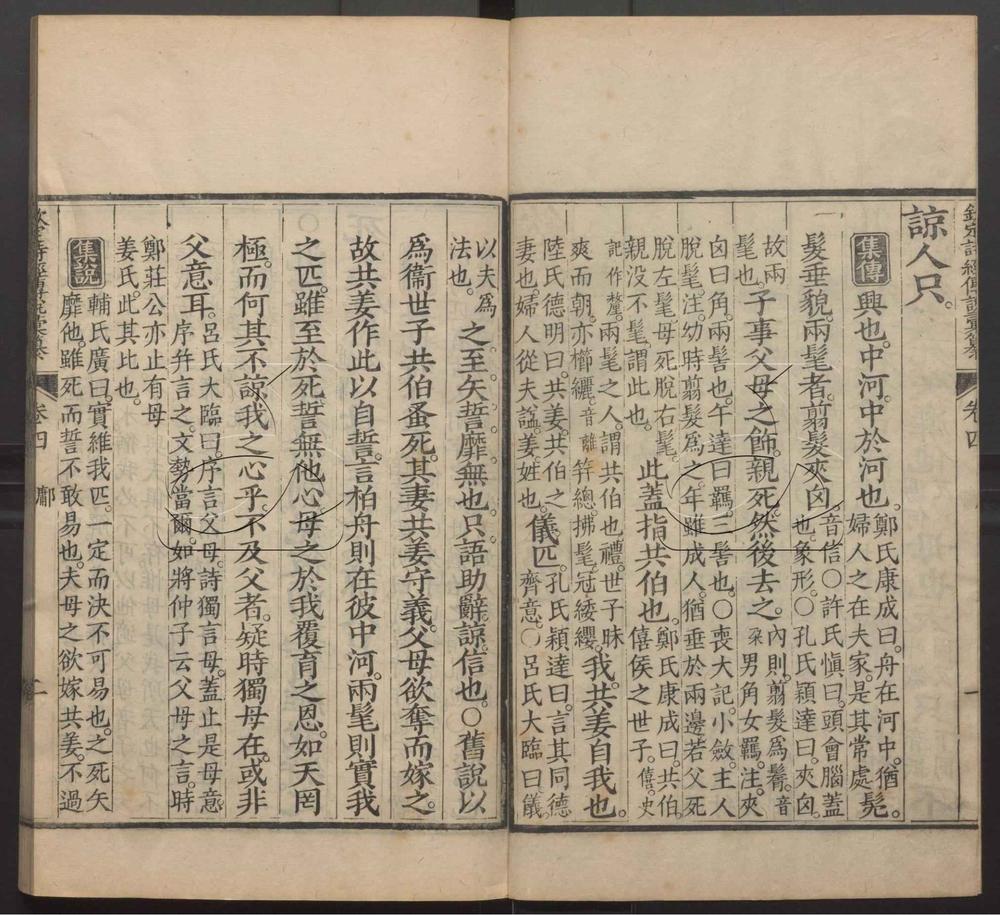 諒人只。
集傳 興也。中河。中於河也。鄭氏康成曰。舟在河中。猶婦人之在夫家。是其常處。髧。
髮垂貌。兩髦者。翦髮夾囟。音信○許氏愼曰。頭會腦蓋也。象形。○孔氏穎達曰。夾囟
故兩髦也。子事父母之飾。親死然後去之。內則。翦髮爲鬌。音朶男角女羈。注。夾
囟曰角。兩髻也。午達曰羈。三髻也。○喪大記。小斂。主人脫髦。注。幼時翦髮爲之。年雖成人。猶垂於兩邊。若父死
脫左髦。母死脫右髦。親没不髦。謂此也。此蓋指共伯也。鄭氏康成曰。共伯僖侯之世子。僖。史
記作釐。兩髦之人。謂共伯也。禮。世子昧爽而朝。亦櫛纚。音離笄總。拂髦。冠緌纓。我。共姜自我也。
陸氏德明曰。共姜。共伯之妻也。婦人從夫諡。姜。姓也。儀。匹。孔氏穎達曰。言其同德齊意。○呂氏大臨曰。儀。
以夫爲法也。之。至。矢。誓。靡。無也。只。語助辭。諒。信也。○舊說以
爲衞世子共伯蚤死。其妻共姜守義。父母欲奪而嫁之。
故共姜作此以自誓。言柏舟則在彼中河。兩髦則實我
之匹。雖至於死。誓無他心。母之於我。覆育之恩。如天罔
極。而何其不諒我之心乎。不及父者。疑時獨母在。或非
父意耳。呂氏大臨曰。序言父母。詩獨言母。蓋止是母意。序幷言之。文勢當爾。如將仲子云父母之言。時
鄭莊公亦止有母姜氏。此其比也。
集說 輔氏廣曰。實維我匹。一定而決不可易也。之死矢靡他。雖死而誓不敢易也。夫母之欲嫁共姜。不過
卷四
一
卷四
鄘
二